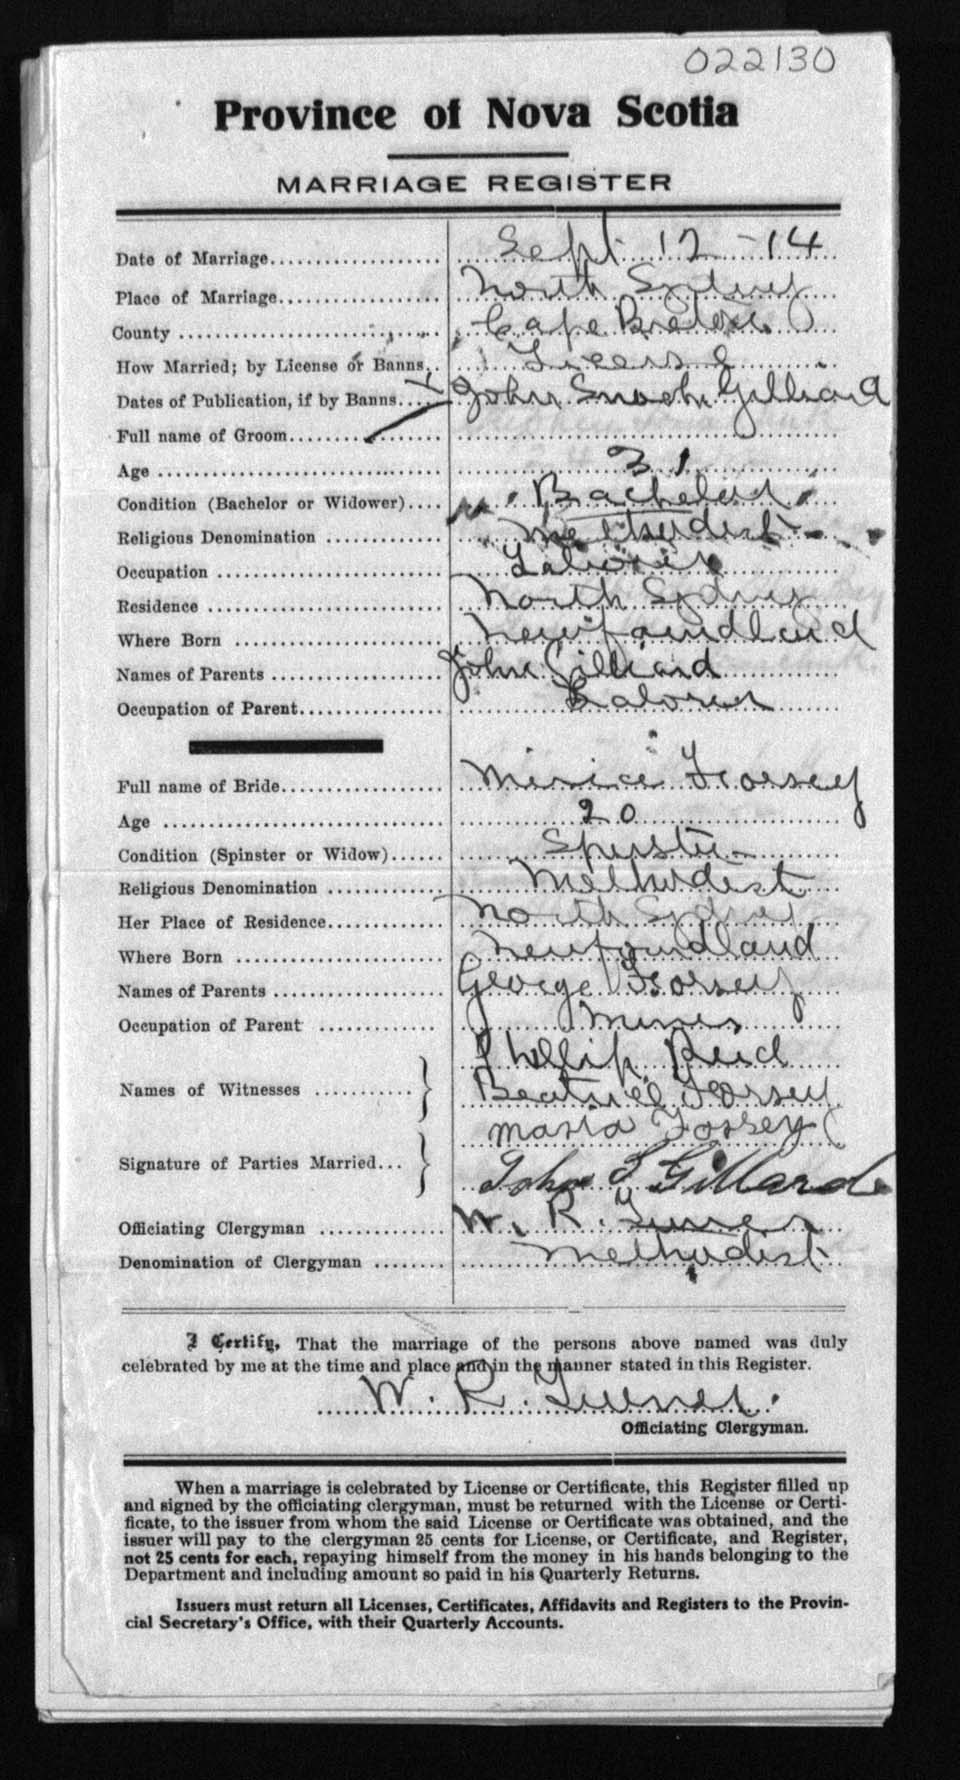 022130
Province of Nova Scotia
MARRIAGE REGISTER
Date of Marriage Sept 12 - 14
Place of Marriage North Sydney
County Cape Breton
How Married; by License or Banns License
Dates of Publication, if by Banns John Gilliard
Full name of Groom
Age 31
Condition (Bachelor or Widower) Bachelor
Religious Denomination Methodist
Occupation Laborer
Residence North Sydney
Where Born Newfoundland
Names of Parents John Gilliard
Occupation of Parent Laborer
Full name of Bride Forsey
Age 20
Condition (Spinster or Widow) Spinster
Religious Denomination Methodist
Her Place of Residence North Sydney
Where Born Newfoundland
Names of Parents George Forsey
Occupation of Parent Miner
Phillip Reid
Names of Witnesses Beatrice Forsey
Maria Forsey
Signature of Parties Married John S Gillard
Officiating Clergyman W. R. Turner
Denomination of Clergyman Methodist
I Certify, That the marriage of the persons above named was duly
celebrated by me at the time and place and in the manner stated in this Register.
W. R. Turner
Officiating Clergyman.
When a marriage is celebrated by License or Certificate, this Register filled up
and signed by the officiating clergyman, must be returned with the License or Certi-
ficate, to the issuer from whom the said License or Certificate was obtained, and the
issuer will pay to the clergyman 25 cents for License, or Certificate, and Register,
not 25 cents for each, repaying himself from the money in his hands belonging to the
Department and including amount so paid in his Quarterly Returns.
Issuers must return all Licenses, Certificates, Affidavits and Registers to the Provin-
cial Secretary's Office, with their Quarterly Accounts.